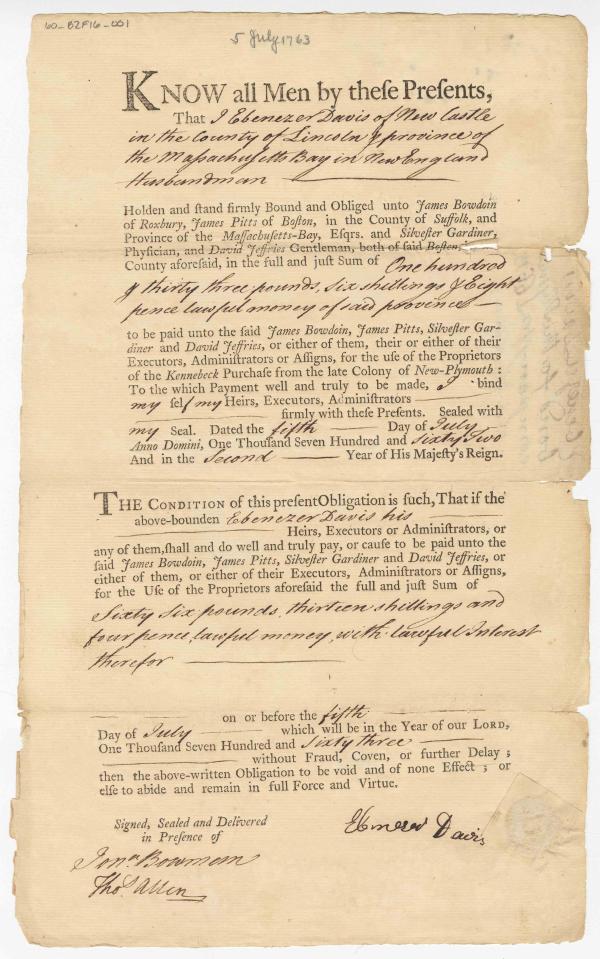 60_B2F16_001
5 July 1763
KNOW all Men by these Presents,
That I Ebenezer Davis of New Castle
in the County of Lincoln & province of
the Massachusetts Bay in New England
Husbandman
Holden and stand firmly Bound and Obliged unto James Bowdoin
of Roxbury, James Pitts of Boston, in the County of Suffolk, and
Province of the Massachusetts-Bay, Esqrs. and Silvester Gardiner,
Physician, and David Jeffries Gentleman, both of said Boston,
County aforesaid, in the full and just Sum of One hundred
& thirty three pounds, six shillings & Eight
pence lawful money of said province
to be paid unto the said James Bowdoin, James Pitts, Silvester Gar-
diner and David Jeffries, or either of them, their or either of their
Executors, Administrators or Assigns, for the use of the Proprietors
of the Kennebeck Purchase from the late Colony of New-Plymouth :
To the which Payment well and truly to be made, I bind
my self my Heirs, Executors, Administrators
firmly with these Presents. Sealed with
my Seal. Dated the fifth Day of July
Anno Domini, One Thousand Seven Hundred and sixty Two
And in the Second Year of His Majesty's Reign.
THE CONDITION of this present Obligation is such, That if the
above-bounden Ebenezer Davis his
Heirs, Executors or Administrators, or
any of them, shall and do well and truly pay, or cause to be paid unto the
said James Bowdoin, James Pitts, Silvester Gardiner and David Jeffries, or
either of them, or either of their Executors, Administrators or Assigns,
for the Use of the Proprietors aforesaid the full and just Sum of
Sixty Six pounds, thirteen shillings and
four pence, lawful money, with lawful Interest
therefor
on or before the fifth
Day of July which will be in the Year of our LORD,
One Thousand Seven Hundred and Sixty three
without Fraud, Coven, or further Delay ;
then the above-written Obligation to be void and of none Effect ; or
else to abide and remain in full Force and Virtue.
Signed, Sealed and Delivered
in Presence of
Ebenezer Davis
Jonn. Bowman
Thos. Allen